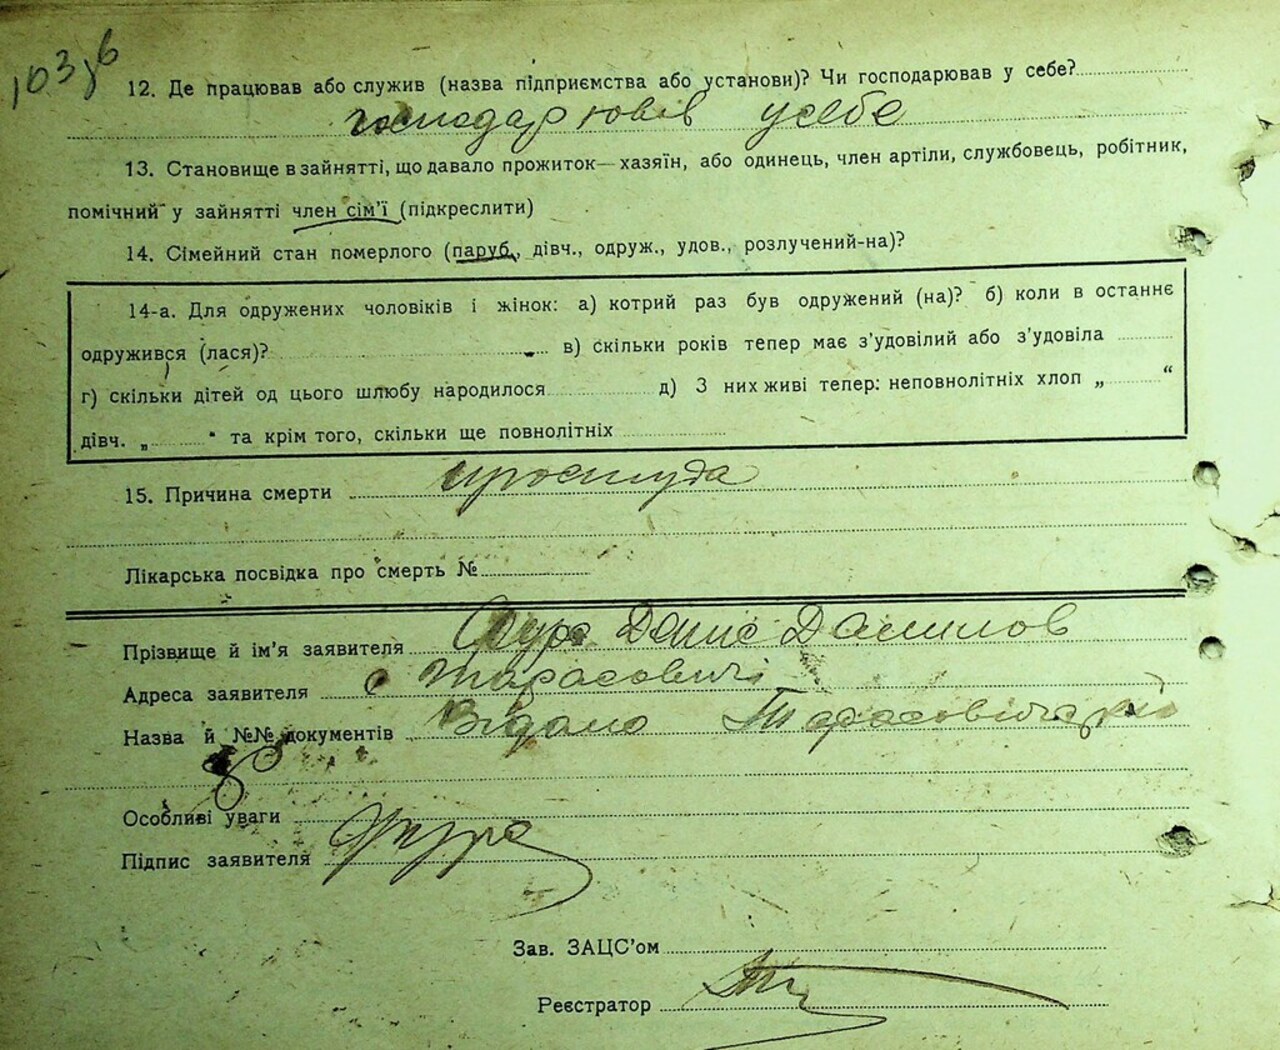 103зв
12. Де працював або служив (назва підприємства або установи)? Чи господарював у себе?
господарював усебе
13. Становище в зайнятті, що давало прожиток—хазяїн, або одинець, член артіли, службовець, робітник,
помічний у зайнятті член сім'ї (підкреслити)
14. Сімейний стан померлого (паруб., дівч., одруж., удов., розлучений-на)?
14-а. Для одружених чоловіків і жінок: а) котрий раз був одружений (на)? б) коли в останнє
одружився (лася)? в) скільки років тепер має з'удовілий або з'удовіла
г) скільки дітей од цього шлюбу народилося д) З них живі тепер: неповнолітніх хлоп „ “
дівч. „ “ та крім того, скільки ще повнолітніх
15. Причина смерти простуда
Лікарська посвідка про смерть №
Прізвище й ім'я заявителя Фура Денис Данилов
Адреса заявителя с Тарасовичі
Назва й №№ документів Відано
Особливі уваги
Підпис заявителя Фура
Зав. ЗАЦС'ом
Реєстратор